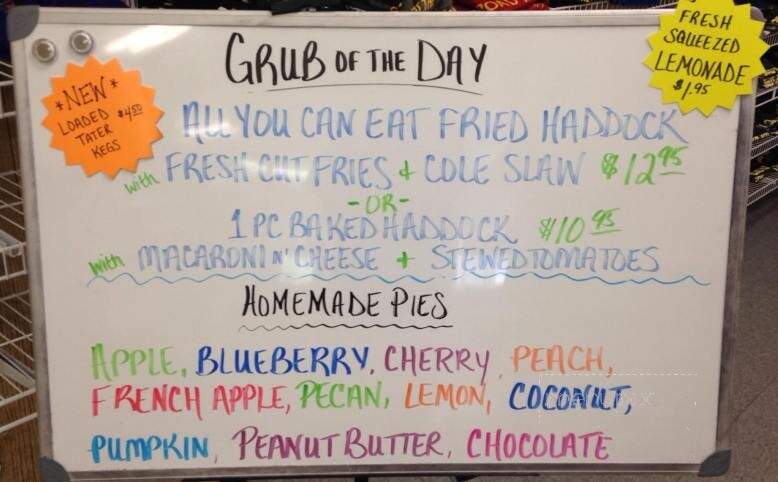 GRUB OF THE DAY
*NEW*
LOADED $4.50
TATER
KEGS
FRESH
SQUEEZED
LEMONADE
$1.95
ALL YOU CAN EAT FRIED HADDOCK
with FRESH CUT FRIES + COLE SLAW $12.95
-OR-
1 PC BAKED HADDOCK $10.95
with MACARONI N' CHEESE + STEWED TOMATOES
HOMEMADE PIES
APPLE, BLUEBERRY, CHERRY, PEACH,
FRENCH APPLE, PECAN, LEMON, COCONUT,
PUMPKIN, PEANUT BUTTER, CHOCOLATE